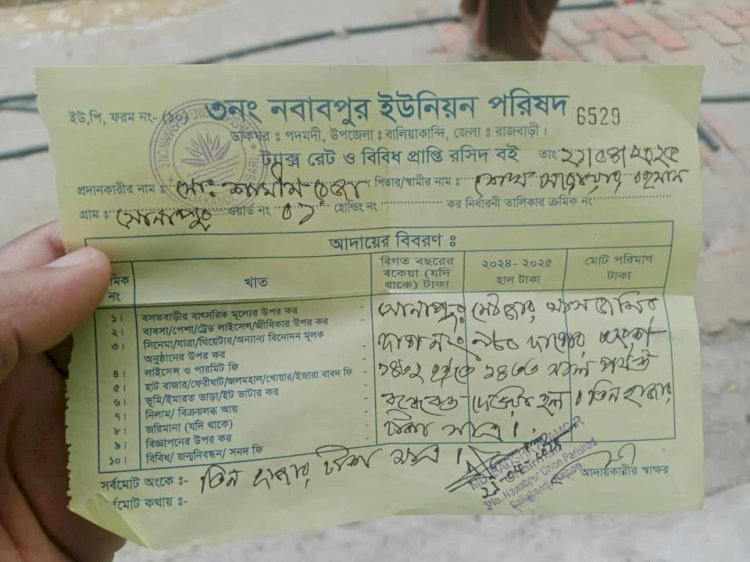 ইউ,পি, ফরম নং- (১০) ৩নং নবাবপুর ইউনিয়ন পরিষদ 6529
ডাকঘর : পদমদী, উপজেলা : বালিয়াকান্দি, জেলা : রাজবাড়ী।
ট্যাক্স রেট ও বিবিধ প্রাপ্তি রসিদ বই তাং
প্রদানকারীর নাম : মোঃ শামীম রেজা পিতার/স্বামীর নাম : শেখ রহমান
গ্রাম : সোনাপুর ওয়ার্ড নং ০১ হোল্ডিং নং কর নির্ধারনী তালিকার ক্রমিক নং :
আদায়ের বিবরণ ঃ
মিক নং খাত বিগত বছরের বকেয়া (যদি থাকে) টাকা ২০২৪- ২০২৫ হাল টাকা মোট পরিমাণ টাকা
১। বসতবাড়ীর বাৎসরিক মূল্যের উপর কর -
২। ব্যবসা/পেশা/ট্রেড লাইসেন্স/জীবিকার উপর কর
৩। সিনেমা/যাত্রা/থিয়েটার/অন্যান্য বিনোদন মূলক
অনুষ্ঠানের উপর কর
৪। লাইসেন্স ও পারমিট ফি
৫। হাট বাজার/ফেরীঘাট/জলমহাল/খোয়ার/ইজারা বাবদ ফি
৬। ভূমি/ইমারত ভাড়া/ইট ভাটার কর
৭। নিলাম/ বিক্রয়লব্ধ আয়
৮। জরিমানা (যদি থাকে)
৯। বিজ্ঞাপনের উপর কর
১০। বিবিধ/ জন্মনিবন্ধন/ সনদ ফি
সোনাপুর
দাগ নং ৯৮০
১৪৩২ হইতে ১৪৩৩ সাল পর্যন্ত
দেওয়া হল। তিন হাজার
টাকা মাত্র।
সর্বমোট অংকে :- তিন হাজার টাকা মাত্র।
আদায়কারীর স্বাক্ষর
র্বমোট কথায় :-
3No. Nawabpur Union Parishad
Baliakandi, Rajbari